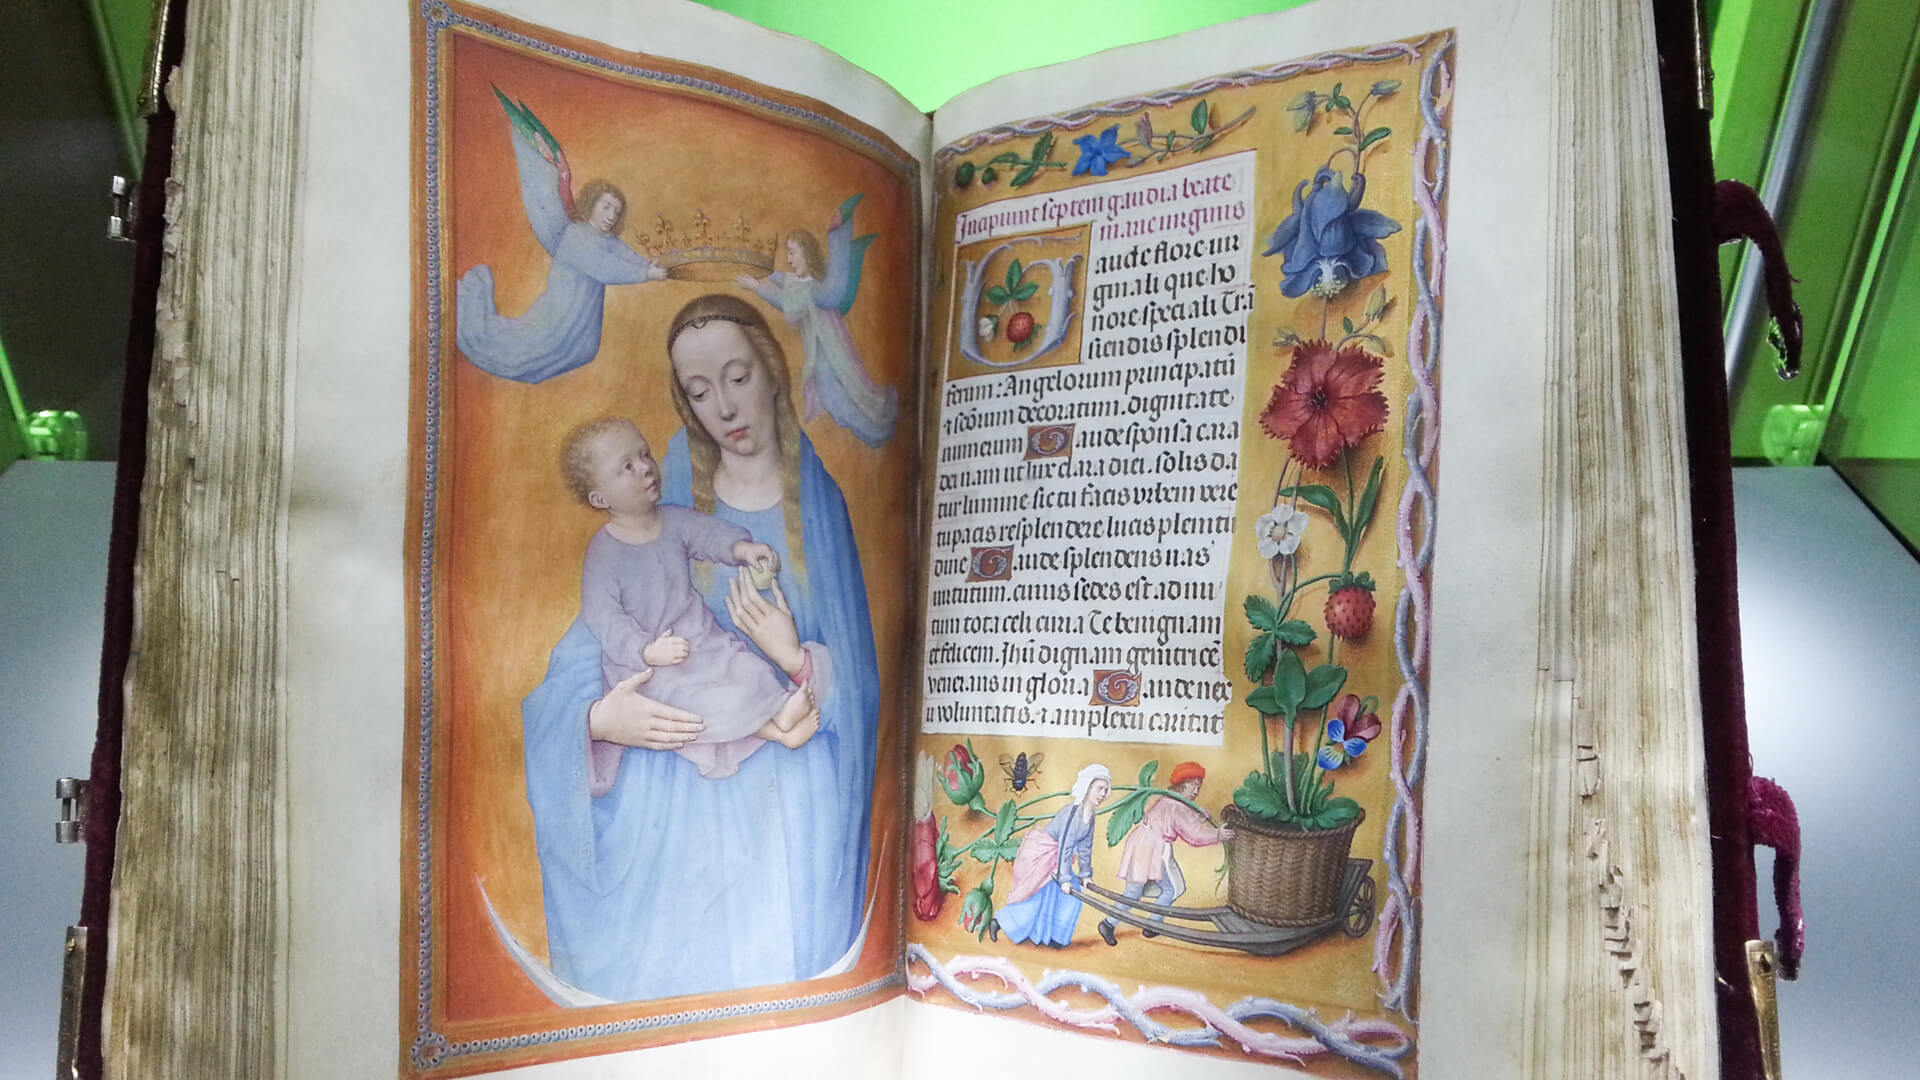 Incipiunt septem gaudia beate
marie uirginis
Gaude flore uir
ginali que ho
nore speciali Trā
siendis splendi
ferum: Angelorum principatū
⁊ scōrum decoratum. dignitate
numerum Gaude sponsa cara
dei nam ut hec clara diei. solis da
tur lumine sic tu facis orbem vere
tu pacis resplendere. lucis plenitu
dine Gaude splendens uas
uirtutum. cuius sedes est ad nu
tum tota celi curia Te benignam
et felicem. Jhū dignam genitricē
venerans in gloria Gaude nex
u voluntatis. ⁊ amplexu caritat